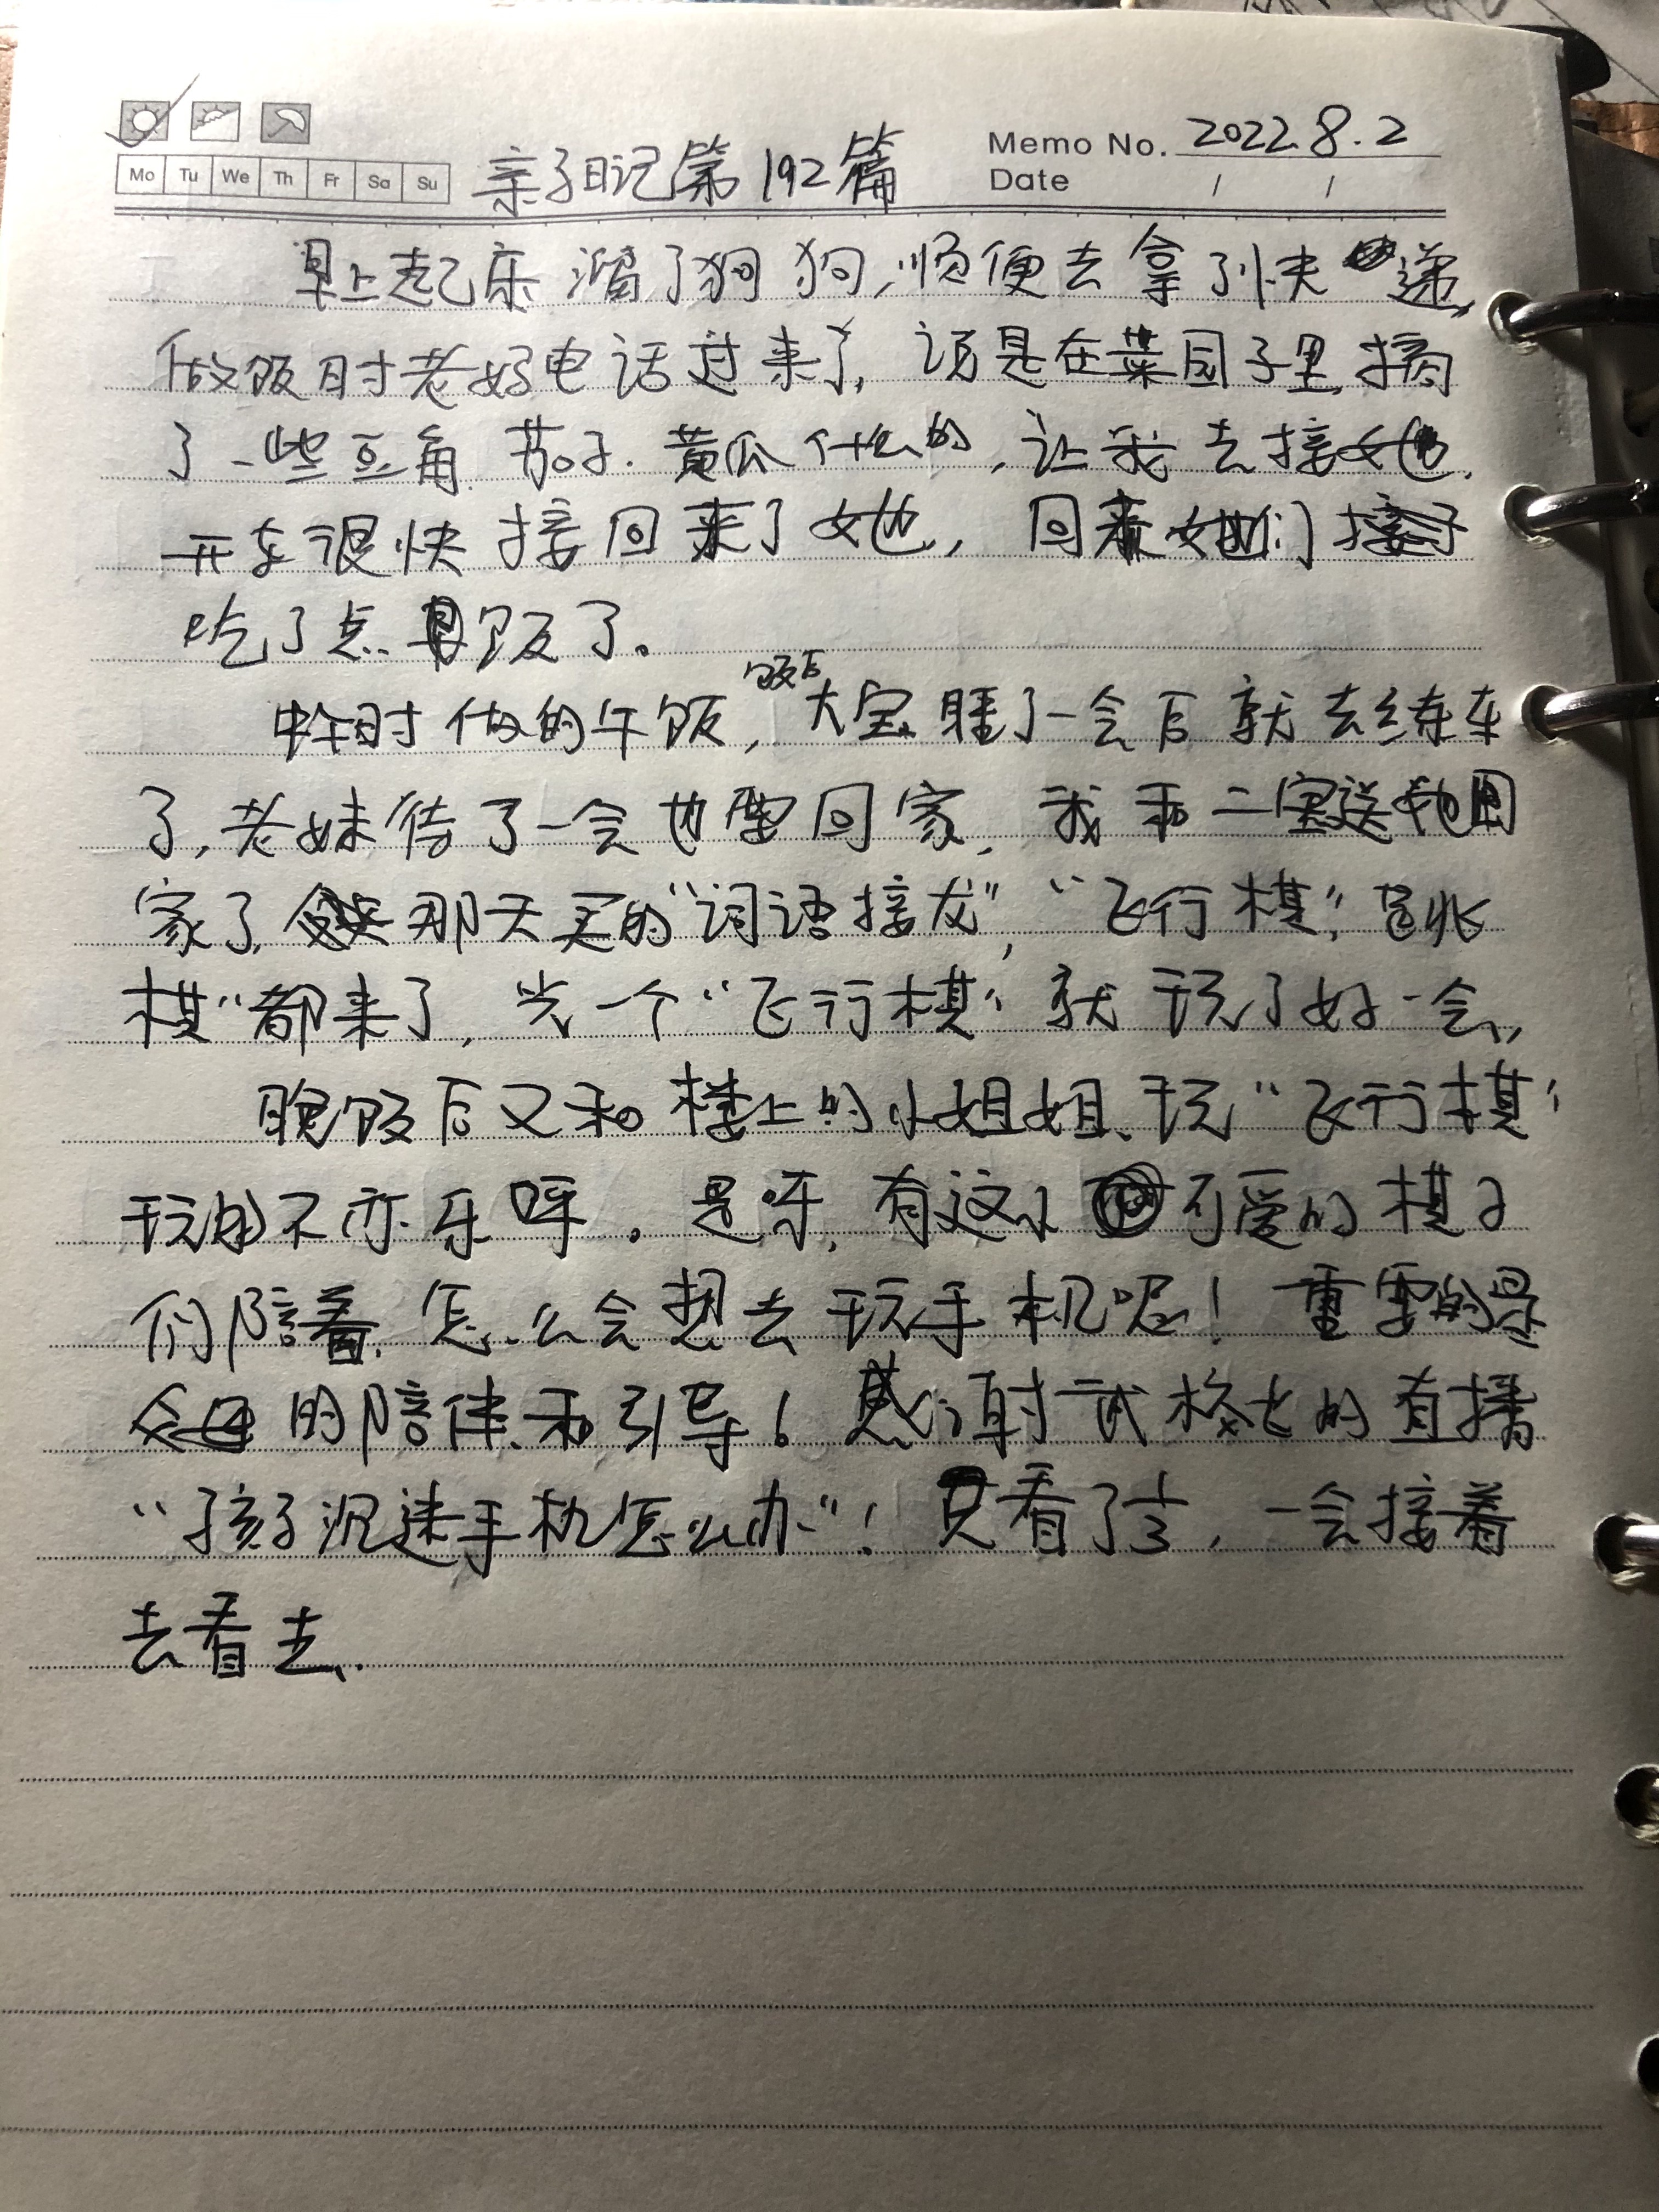 Mo Tu We Th Fr Sa Su 亲子日记第192篇 Memo No. 2022.8.2
Date / /
早上起来溜了狗狗,顺便去拿了快递,
做饭时老妹电话过来了,说是在菜园子里摘
了一些豆角.茄子.黄瓜什么的,让我去接她.
开车很快接回来了她,回来她们接
吃了点早饭了。
中午时做的午饭,饭后大宝睡了一会后就去练车
了,老妹待了一会也要回家,我和二宝送她回
家了,那天买的“词语接龙”,“飞行棋”,
棋”都来了,光一个“飞行棋”就玩了好一会,
晚饭后又和楼上的小姐姐、玩“飞行棋”
玩的不亦乐呼。是呀,有这 可爱的棋子
们陪着,怎么会想去玩手机呢!重要的是
父母的陪伴和引导!感谢武校长的直播
“孩子沉迷手机怎么办”!只看了1/3,一会接着
去看去.